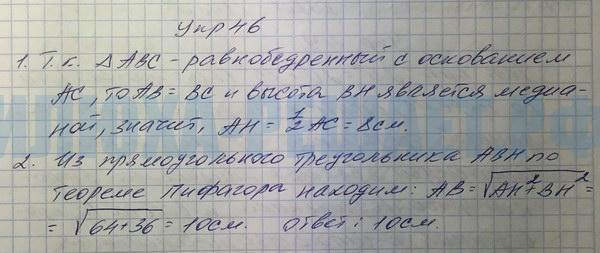 Упр 46
1. Т.к. △ ABC - равнобедренный с основанием
AC, то AB = BC и высота BH является медиа-
ной, значит, AH = 1/2 AC = 8см.
2. Из прямоугольного треугольника ABH по
теореме Пифагора находим: AB = √(AH²+BH²) =
= √(64+36) = 10см. Ответ: 10см.